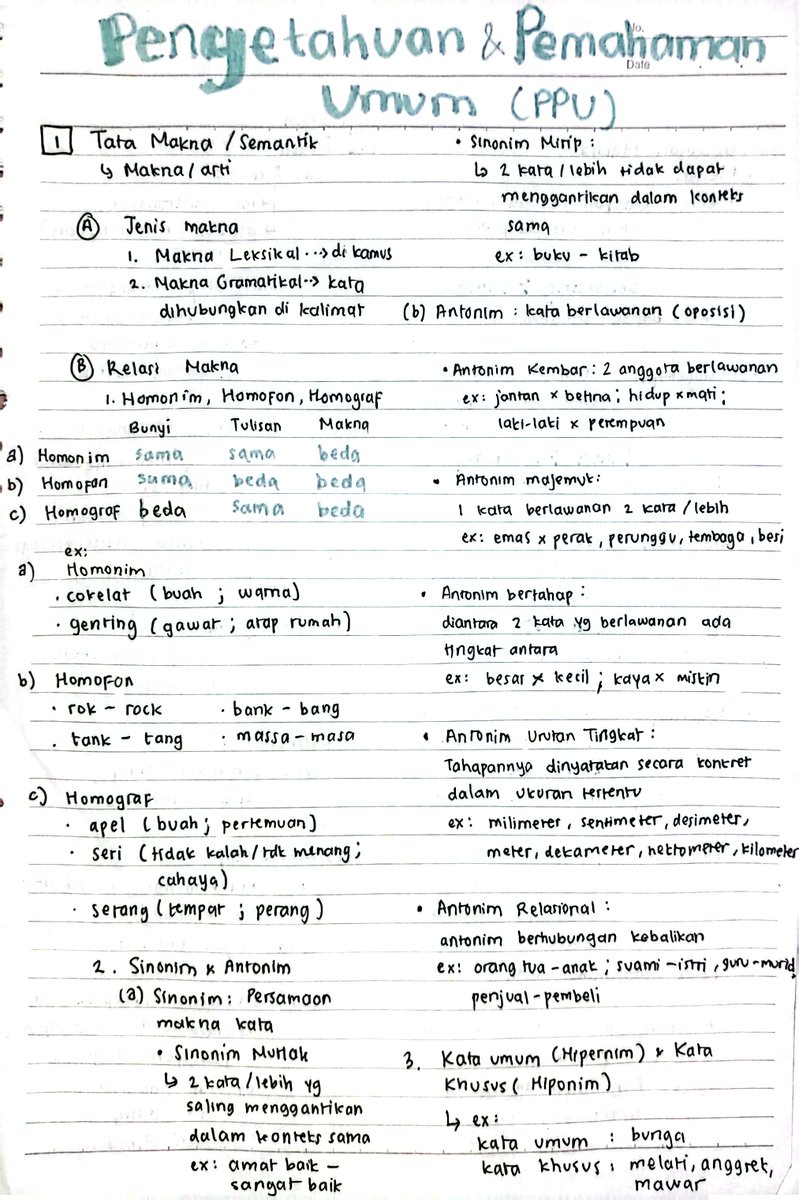 Pengetahuan & Pemahaman
No.
Date
Umum (PPU)
1 Tata Makna / Semantik
↳ Makna / arti
A Jenis makna
1. Makna Leksikal ···> di kamus
2. Makna Gramatikal --> kata
dihubungkan di kalimat
B Relasi Makna
1. Homonim, Homofon, Homograf
Bunyi Tulisan Makna
a) Homonim sama sama beda
b) Homofon sama beda beda
c) Homograf beda sama beda
ex:
a) Homonim
· cokelat (buah ; warna)
· genting (gawat ; atap rumah)
b) Homofon
· rok - rock · bank - bang
· tank - tang · massa - masa
c) Homograf
· apel (buah ; pertemuan)
· seri (tidak kalah/tdk menang ;
cahaya)
· serang (tempat ; perang)
2. Sinonim & Antonim
(a) Sinonim : Persamaan
makna kata
• Sinonim Mutlak
↳ 2 kata/lebih yg
saling menggantikan
dalam konteks sama
ex: amat baik -
sangat baik
• Sinonim Mirip :
↳ 2 kata/lebih tidak dapat
menggantikan dalam konteks
sama
ex: buku - kitab
(b) Antonim : kata berlawanan (oposisi)
• Antonim Kembar : 2 anggota berlawanan
ex: jantan x betina ; hidup x mati ;
laki-laki x perempuan
• Antonim majemuk :
1 kata berlawanan 2 kata/lebih
ex: emas x perak, perunggu, tembaga, besi
• Antonim bertahap :
diantara 2 kata yg berlawanan ada
tingkat antara
ex: besar x kecil ; kaya x miskin
• Antonim Urutan Tingkat :
Tahapannya dinyatakan secara konkret
dalam ukuran tertentu
ex: milimeter, sentimeter, desimeter,
meter, dekameter, hektometer, kilometer
• Antonim Relasional :
antonim berhubungan kebalikan
ex: orang tua - anak ; suami - istri, guru - murid
penjual - pembeli
3. Kata umum (Hipernim) & Kata
khusus (Hiponim)
↳ ex:
kata umum : bunga
kata khusus : melati, anggret,
mawar